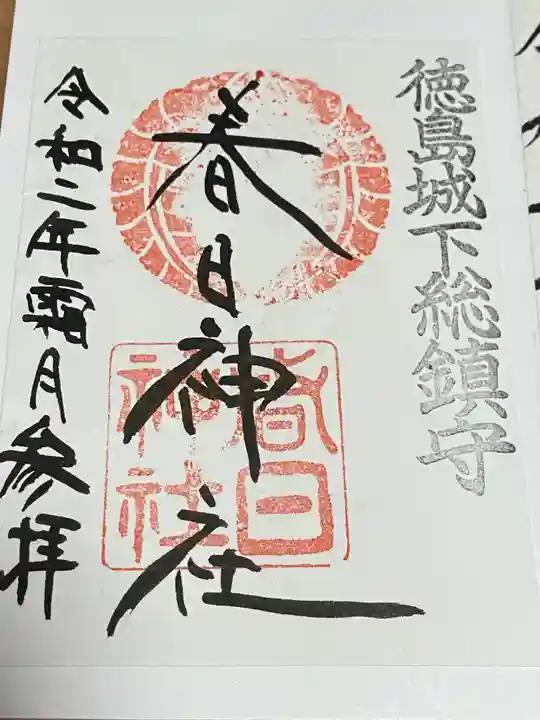 徳島城下総鎮守
春日神社
春日
神社
令和二年霜月参拝